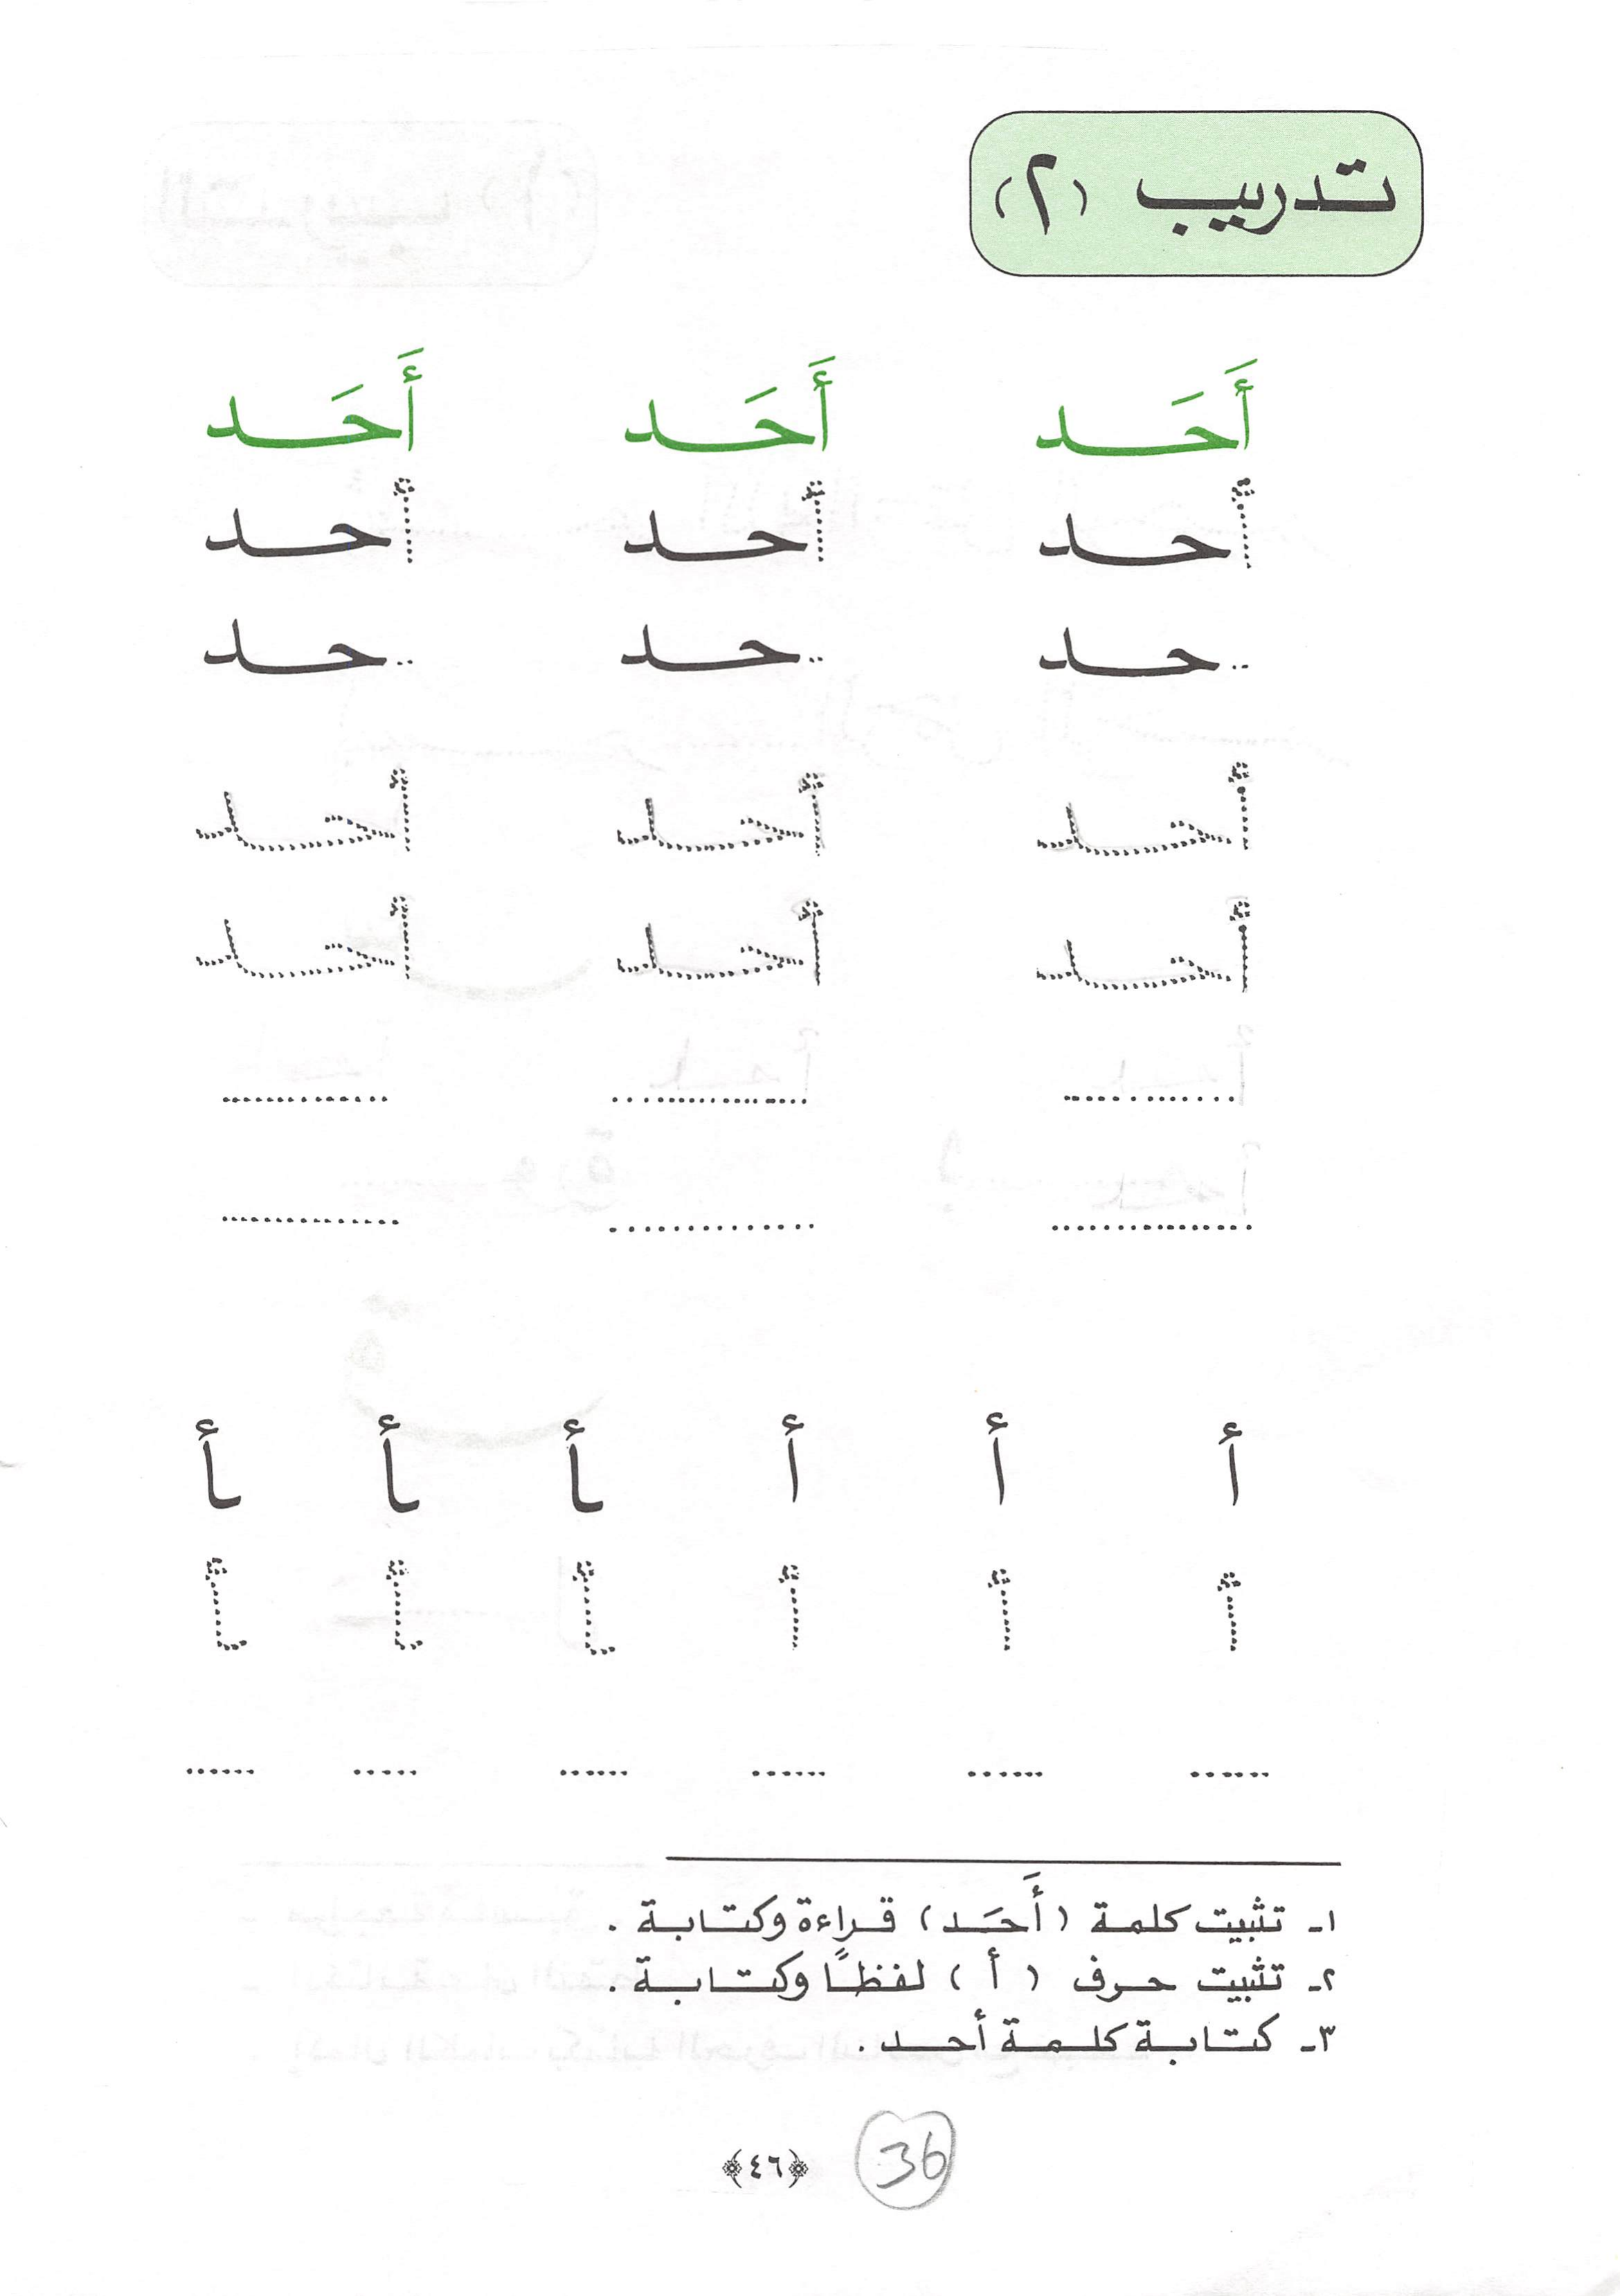 تدريب (٢)
أَحَد أَحَد أَحَد
أحد أحد أحد
..حد ..حد ..حد
أحد أحد أحد
أحد أحد أحد
................ ................ ................
................ ................ ................
أ أ أ ـأ ـأ ـأ
أ أ أ ـأ ـأ ـأ
...... ...... ...... ...... ...... ......
١ـ تثبيت كلمة (أَحَد) قراءة وكتابة .
٢ـ تثبيت حرف (أ) لفظًا وكتابة .
٣ـ كتابة كلمة أحد .
﴿٤٦﴾ 36